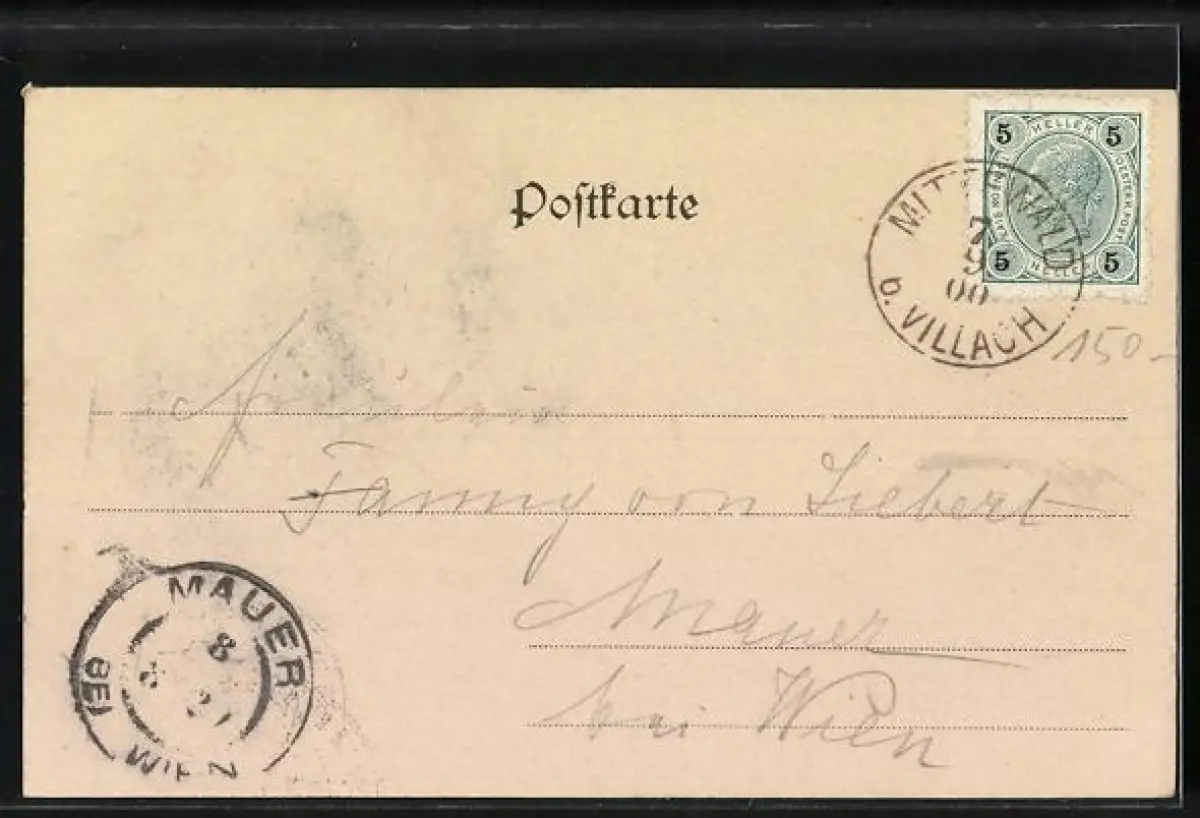 Postkarte
5 HELLER 5
KAIS. KÖNIGL. OESTERR. POST.
5 HELLER 5
MITTEWALD
7
9
00
b. VILLACH
150-
Fräulein
Fanny von Siebert
Mauer
bei Wien
MAUER
8
BEI
WIEN